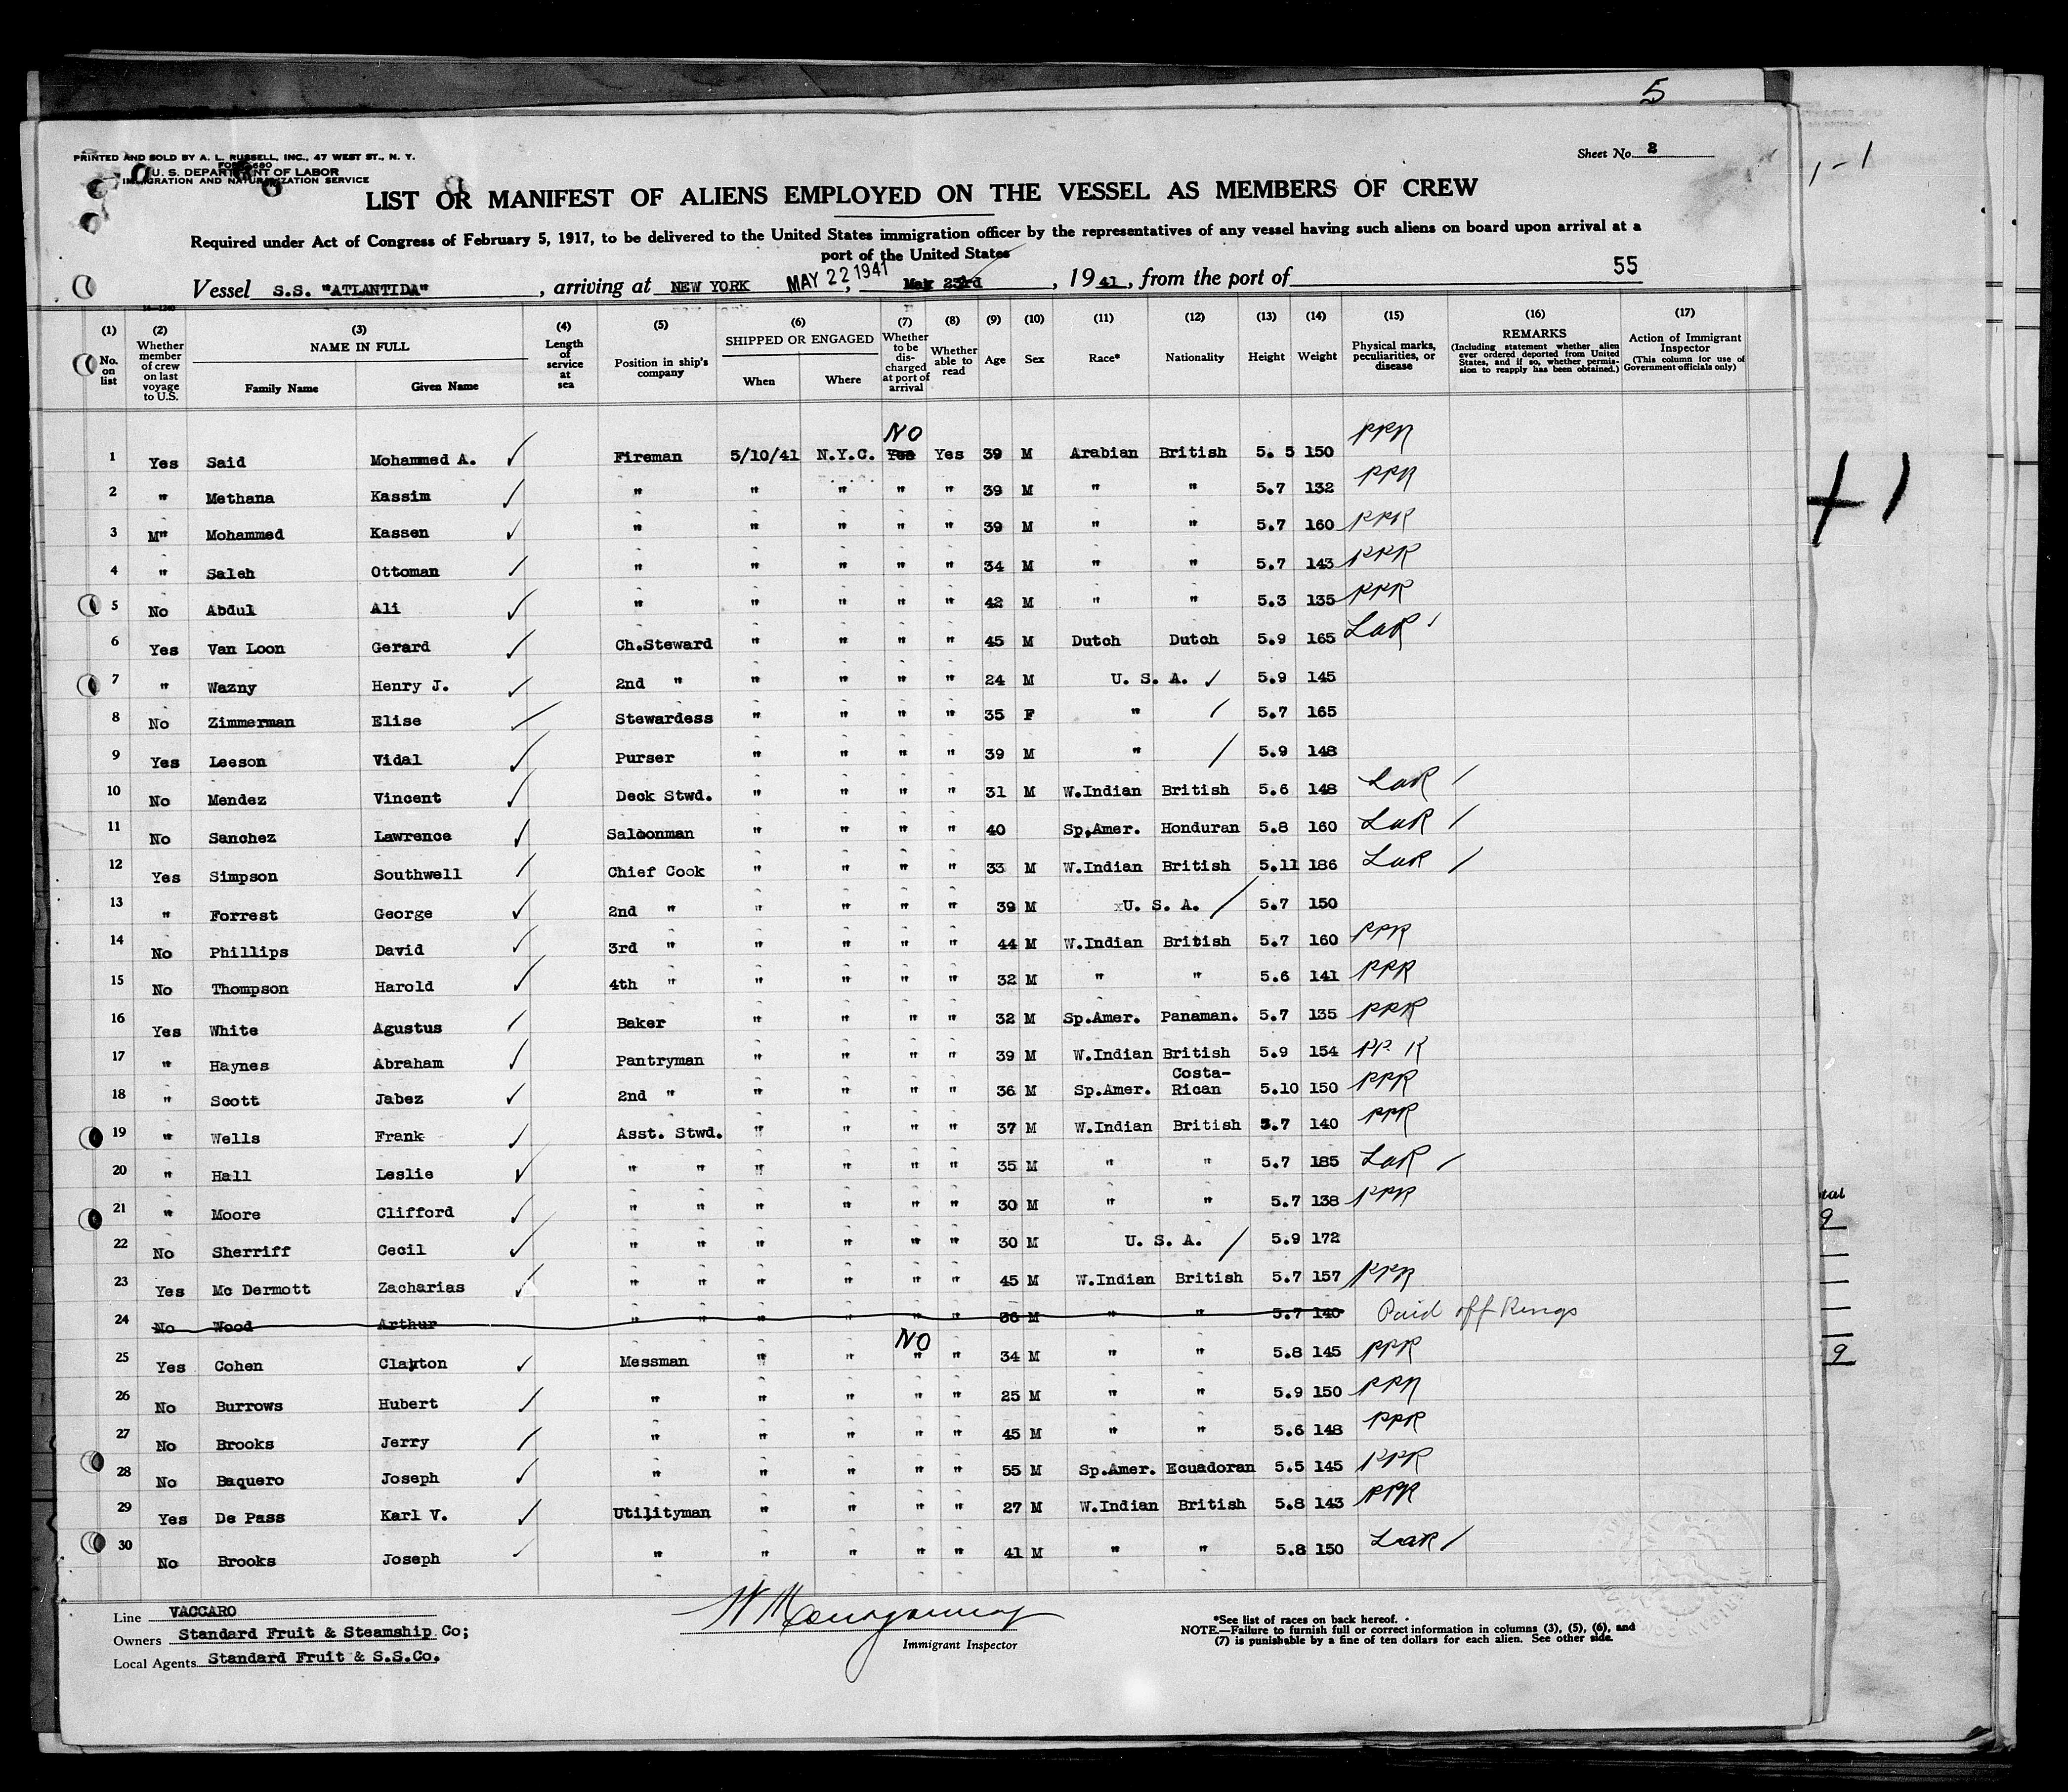 5
PRINTED AND SOLD BY A. L. RUSSELL, INC., 47 WEST ST., N. Y.
U. S. DEPARTMENT OF LABOR
IMMIGRATION AND NATURALIZATION SERVICE
Sheet No. 2
LIST OR MANIFEST OF ALIENS EMPLOYED ON THE VESSEL AS MEMBERS OF CREW
Required under Act of Congress of February 5, 1917, to be delivered to the United States immigration officer by the representatives of any vessel having such aliens on board upon arrival at a
port of the United States
55
Vessel S.S. "ATLANTIDA", arriving at NEW YORK MAY 22 1941, May 23rd, 1941, from the port of
(1) No. on list (2) Whether member of crew on last voyage to U.S. (3) NAME IN FULL Family Name Given Name (4) Length of service at sea (5) Position in ship's company (6) SHIPPED OR ENGAGED When Where (7) Whether to be discharged at port of arrival (8) Whether able to read (9) Age (10) Sex (11) Race* (12) Nationality (13) Height (14) Weight (15) Physical marks, peculiarities, or disease (16) REMARKS (Including statement whether alien ever ordered deported from United States, and if so, whether permission to reapply has been obtained.) (17) Action of Immigrant Inspector (This column for use of Government officials only)
NO
1 Yes Said Mohammed A. ✓ Fireman 5/10/41 N.Y.C. Yes Yes 39 M Arabian British 5. 5 150 PPR
2 " Methana Kassim ✓ " " " " " 39 M " " 5.7 132 PPR
3 M" Mohammed Kassen ✓ " " " " " 39 M " " 5.7 160 PPR
4 " Saleh Ottoman ✓ " " " " " 34 M " " 5.7 143 PPR
5 No Abdul Ali ✓ " " " " " 42 M " " 5.3 135 PPR
6 Yes Van Loon Gerard ✓ Ch.Steward " " " " 45 M Dutch Dutch 5.9 165 LaR /
7 " Wazny Henry J. ✓ 2nd " " " " " 24 M U. S. A. ✓ 5.9 145
8 No Zimmerman Elise ✓ Stewardess " " " " 35 F " / 5.7 165
9 Yes Leeson Vidal ✓ Purser " " " " 39 M " / 5.9 148
10 No Mendez Vincent ✓ Deck Stwd. " " " " 31 M W.Indian British 5.6 148 LaR /
11 No Sanchez Lawrence ✓ Saloonman " " " " 40 Sp.Amer. Honduran 5.8 160 LaR /
12 Yes Simpson Southwell ✓ Chief Cook " " " " 33 M W.Indian British 5.11 186 LaR /
13 " Forrest George ✓ 2nd " " " " " 39 M xU. S. A. / 5.7 150
14 No Phillips David ✓ 3rd " " " " " 44 M W.Indian British 5.7 160 PPR
15 No Thompson Harold ✓ 4th " " " " " 32 M " " 5.6 141 PPR
16 Yes White Agustus ✓ Baker " " " " 32 M Sp.Amer. Panaman. 5.7 135 PPR
17 " Haynes Abraham ✓ Pantryman " " " " 39 M W.Indian British 5.9 154 PPR
18 " Scott Jabez ✓ 2nd " " " " " 36 M Sp.Amer. Costa-Rican 5.10 150 PPR
19 " Wells Frank ✓ Asst. Stwd. " " " " 37 M W.Indian British 5.7 140 PPR
20 " Hall Leslie ✓ " " " " " " 35 M " " 5.7 185 LaR /
21 " Moore Clifford ✓ " " " " " " 30 M " " 5.7 138 PPR
22 No Sherriff Cecil ✓ " " " " " " 30 M U. S. A. / 5.9 172
23 Yes Mc Dermott Zacharias ✓ " " " " " " 45 M W.Indian British 5.7 157 PPR
24 No Wood Arthur " " " " " " 36 M " " 5.7 140 Paid off Kings
NO
25 Yes Cohen Clayton ✓ Messman " " " " 34 M " " 5.8 145 PPR
26 No Burrows Hubert ✓ " " " " " 25 M " " 5.9 150 PPR
27 No Brooks Jerry ✓ " " " " " 45 M " " 5.6 148 PPR
28 No Baquero Joseph ✓ " " " " " 55 M Sp.Amer. Ecuadoran 5.5 145 PPR
29 Yes De Pass Karl V. ✓ Utilityman " " " " 27 M W.Indian British 5.8 143 PPR
30 No Brooks Joseph ✓ " " " " " 41 M " " 5.8 150 LaR /
Line VACCARO
Owners Standard Fruit & Steamship Co;
Local Agents Standard Fruit & S.S.Co.
Immigrant Inspector
*See list of races on back hereof.
NOTE.—Failure to furnish full or correct information in columns (3), (5), (6), and
(7) is punishable by a fine of ten dollars for each alien. See other side.